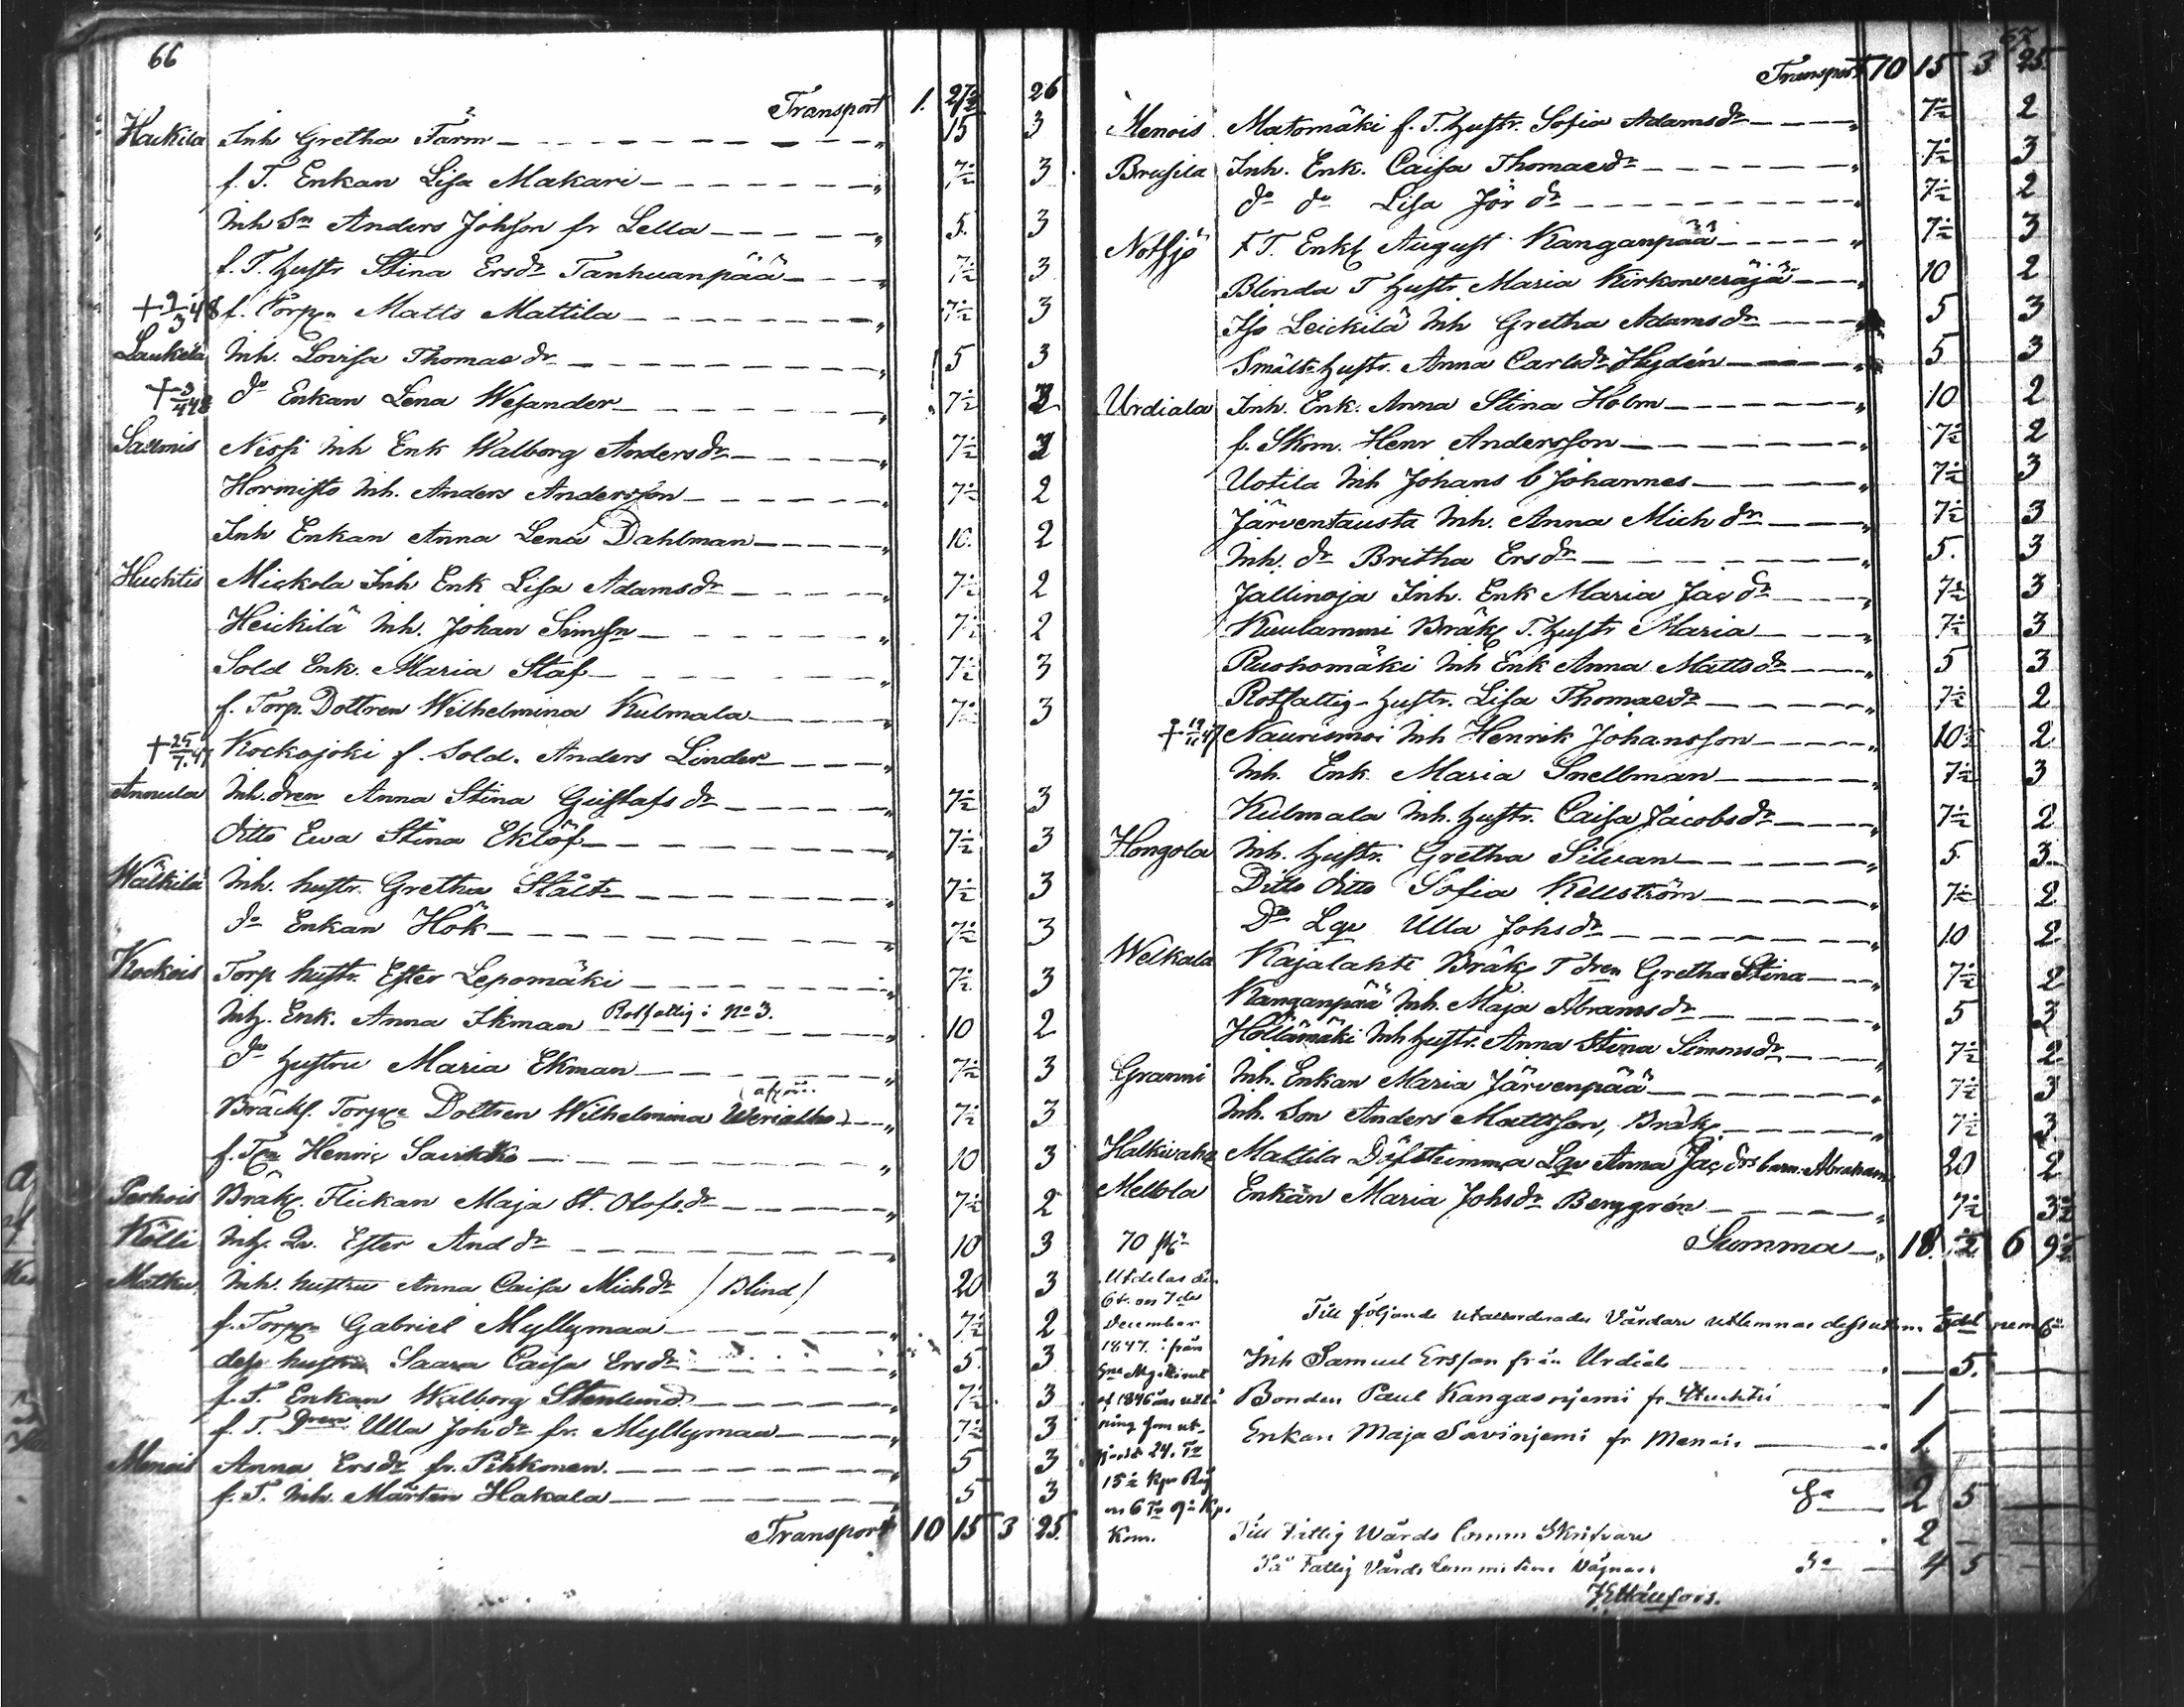 66
Transport 1. 27½ 26
Haukila Inh Gretha Farm 15 3
f. T. Enkan Lisa Makari 7½ 3
Inh Sn Anders Johsson fr Lella 5. 3
f. T. hustr Stina Ersdr Tanhuanpää 7½ 3
+ 2/3 48 f. Torpn Matts Mattila 7½ 3
Laukela Inh. Lovisa Thomasdr 5 3
+ 3/4 48 do Enkan Lena Wesander 7½
Salmis Inh Enk Walborg Andersdr 7½
Hormisto Inh. Anders Andersson 7½ 2
Inh Enkan Anna Lena Dahlman 10. 2
Huchtis Mickola Inh Enk Lisa Adamsdr 7½ 2
Heickilä Inh. Johan Simsn 7½ 2
Sold Enk. Maria Staf 7½ 3
f. Torp. Dottren Wilhelmina Kulmala 7½ 3
+ 25/7.47 Kockojoki f. Sold. Anders Linder
Annula Inh. dren Anna Stina Gustafsdr 7½ 3
ditto Ewa Stina Eklöf 7½ 3
Wälkilä Inh. hustr. Gretha Stålt 7½ 3
do Enkan Hök 7½ 3
Kockois Torp hustr. Ester Lepomäki 7½ 3
Inh. Enk. Anna Ikman Rotfattig i No 3. 10 2
do hustru Maria Ekman 7½ 3
Bräckl. Torpre Dottren Wilhelmina Werialho 7½ 3
f. Tpn Henric Savikko 10 3
Perhois Bräkl. Flickan Maja St. Olofsdr 7½ 2
Kölli Inh. Qv. Ester And dr 10 3
Matku Inh. hustru Anna Caisa Michdr / Blind / 20 3
f. Torpn Gabriel Myllymaa 7½ 2
dess hustru Saara Caisa Ersdr 5 3
f. T. Enkan Walborg Stenlund 7½ 3
f. T. Dren Ulla Johdr fr. Myllymaa 7½ 3
Menois Anna Ersdr fr. Pihkonen. 5 3
f. T. Inh. Mårten Hakala 5 3
Transport 10 15 3 25.
67
Transport 10 15 3 25.
Menois Matomäki f. T. hustr. Sofia Adamsdr 7½ 2
Brusila Inh. Enk. Caisa Thomasdr 7½ 3
do do Lisa Jör dr 7½ 2
Notsjö f T. Enkl August Kanganpää 7½ 3
Blinda T hustr Maria Kirkonveräjä 10 2
Iso Leickilä Inh Gretha Adamsdr 5 3
Smälts hustr. Anna Carlsdr Hydén 5 3
Urdiala Inh. Enk. Anna Stina Holm 10 2
f. Skom. Henr Andersson 7½ 2
Uotila Inh Johans b Johannes 7½ 3
Järventausta Inh. Anna Mich dr 7½ 3
Inh. dr Britha Ersdr 5. 3
Jallinoja Inh. Enk Maria Jac dr 7½ 3
Kuulammi Bräkl T. hustr Maria 7½ 3
Ruohomäki Inh Enk Anna Mattsdr 5 3
Rotfattig hustr. Lisa Thomasdr 7½ 2
Inh Henrik Johansson 10 2
Inh. Enk. Maria Snellman 7½ 3
Kulmala Inh. hustr. Caisa Jacobsdr 7½ 2
Hongola Inh. hustr. Gretha Silvan 5. 3
Ditto ditto Sofia Kellström 7½ 2
Do Lqv Ulla Johsdr 10 2
Welkala Kajalahti Bräkl T dren Gretha Stina 7½ 2
Kanganpää Inh. Maja Abramsdr 5 3
Höltämäki Inh hustr. Anna Stina Simonsdr 7½ 2
Granni Inh. Enkan Maria Järvenpää 7½ 3
Inh. Son Anders Mattsson, Bräkl 7½ 3
Halkivaha Mattila Döfstumma Lqv Anna Jac drs barn Abraham 20 2
Mellola Enkan Maria Johsdr Berggrén 7½ 3½
Summa 18 ½ 6 9½
Utdelas den
6te on 7de
December
1847 ifrån
Till följande utaccorderades Vårdare utlemnas dessutom
Inh Samuel Ersson från Urdiala 5.
Bonden Paul Kangasnjemi fr Huchtis 1
Enkan Maja Savinjemi fr Menois 1
Sa 2 5
Till Fattig Wårds Comm Skrifvare 2
Sa 4 5
På Fattig Vårds Committens Vägnar